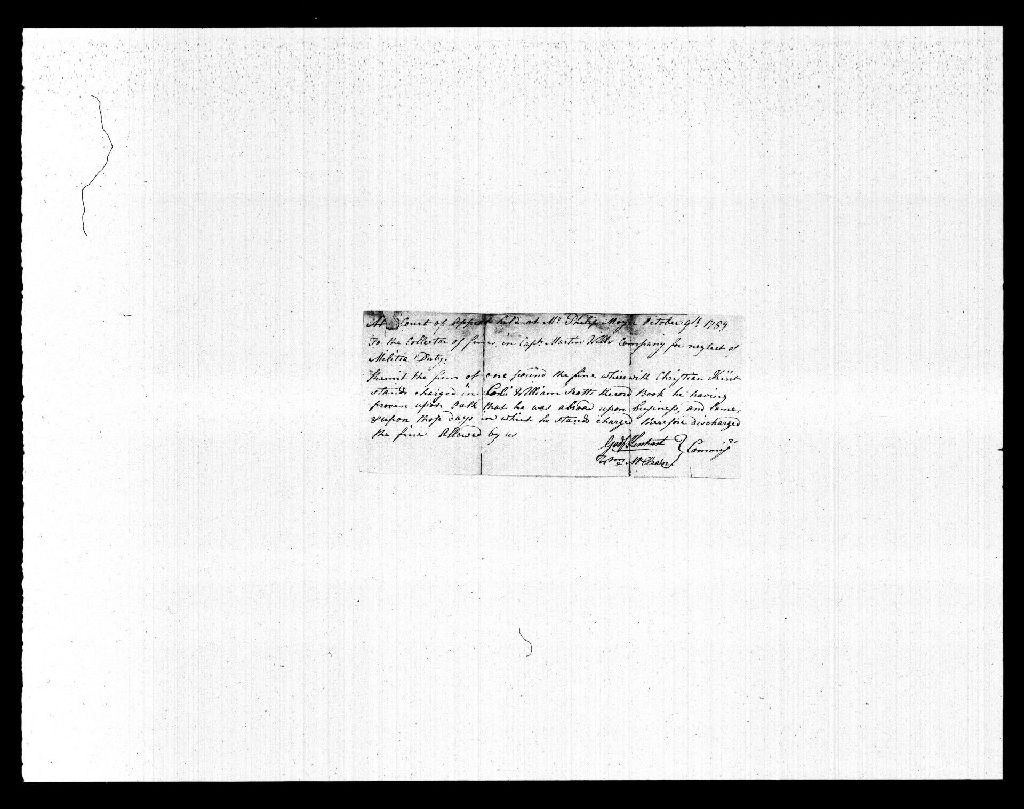 At Court of Appeal held at Mr. Philip October 9th 1789
To the Collector of fines in Capt. Martin Company for neglect of
Militia Duty.
Remit the sum of one pound the fine wherewith Christian
stands charged in Col. William Scotts Record Book he having
proven upon oath that he was abroad upon business, and lame,
upon those days in which he stands charged therefore discharged
the fine Allowed by us